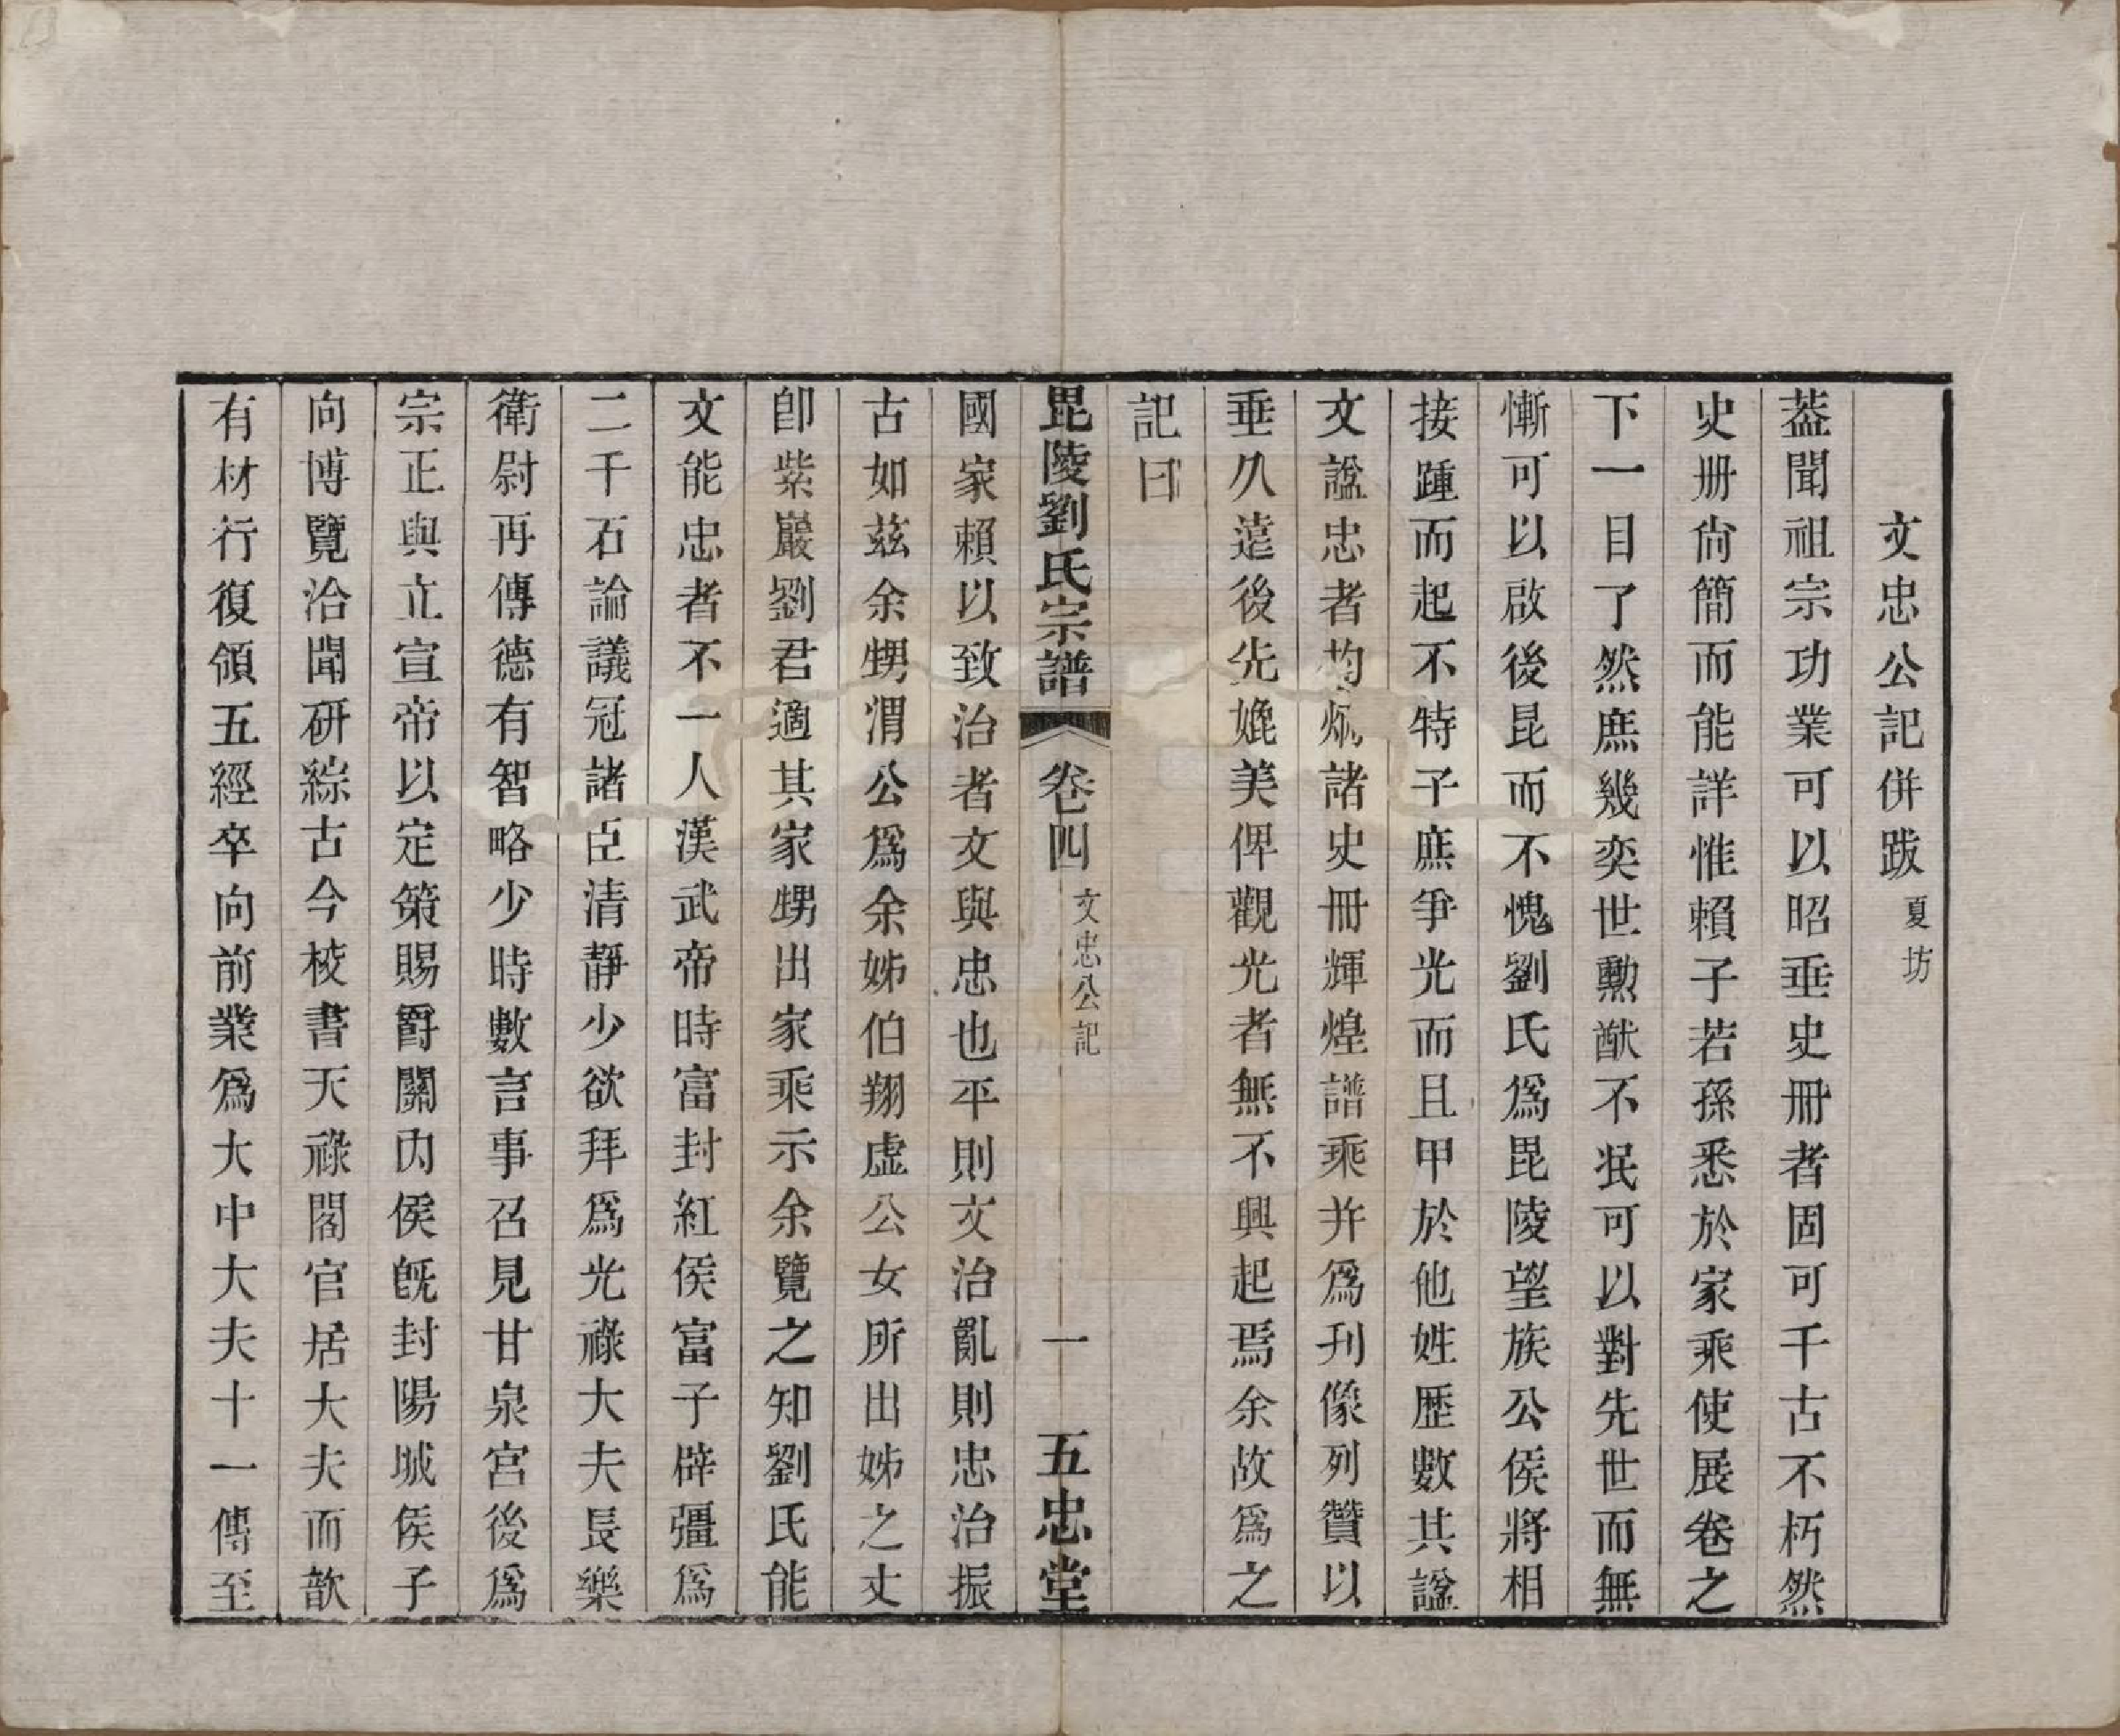 文忠公記併跋 夏坊
葢聞祖宗功業可以昭垂史冊者固可千古不朽然
史册尙簡而能詳惟賴子若孫悉於家乘使展卷之
下一目了然庶幾奕世勲猷不泯可以對先世而無
慚可以啟後昆而不愧劉氏爲毘陵望族公侯將相
接踵而起不特子庶爭光而且甲於他姓歷數其諡
文諡忠者均炳諸史冊輝煌譜乘并爲刋像列贊以
垂久遠後先媲美俾觀光者無不興起焉余故爲之
記曰
毘陵劉氏宗譜 卷四 文忠公記 一 五忠堂
國家賴以致治者文與忠也平則文治亂則忠治振
古如茲余甥渭公爲余姊伯翔虛公女所出姊之丈
卽紫巖劉君適其家甥出家乘示余覽之知劉氏能
文能忠者不一人漢武帝時富封紅侯富子辟彊爲
二千石論議冠諸臣清靜少欲拜爲光祿大夫長樂
衛尉再傳德有智略少時數言事召見甘泉宮後爲
宗正與立宣帝以定策賜爵關內侯旣封陽城侯子
向博覽洽聞研綜古今校書天祿閣官居大夫而歆
有材行復領五經卒向前業爲大中大夫十一傳至